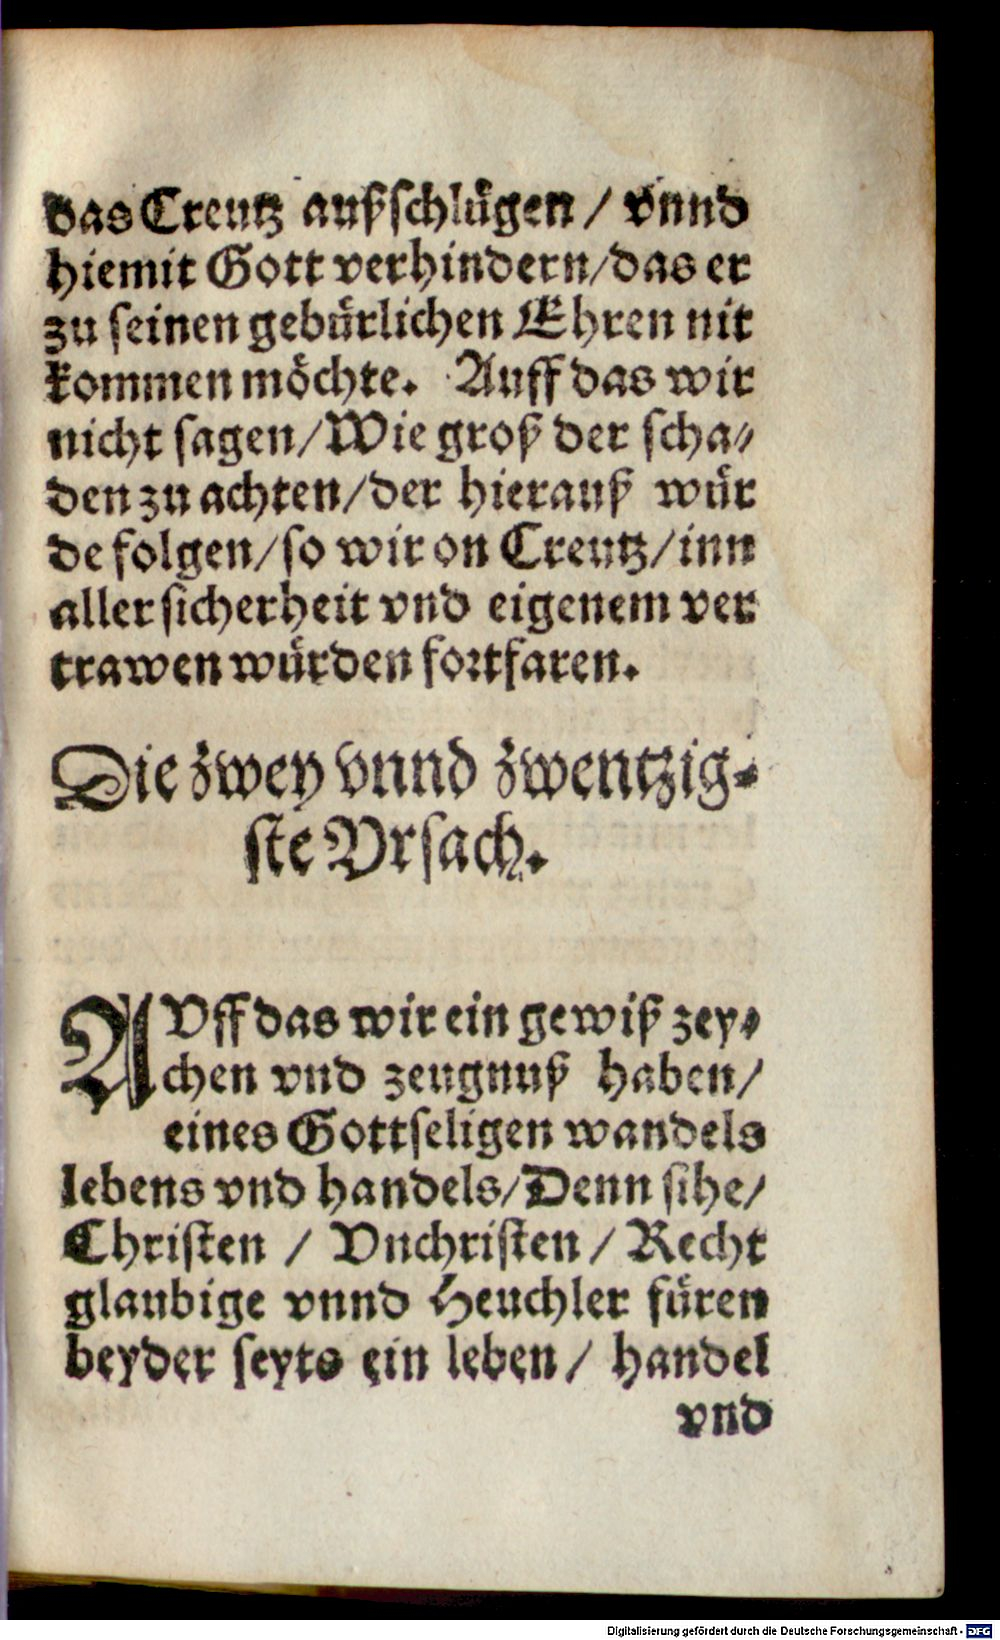 das Creutz außschlügen / vnnd
hiemit Gott verhindern/das er
zu seinen gebürlichen Ehren nit
kommen möchte. Auff das wir
nicht sagen/Wie groß der scha-
den zu achten/der hierauß wür
de folgen/so wir on Creutz/inn
aller sicherheit vnd eigenem ver
trawen würden fortfaren.
Die zwey vnnd zwentzig-
ste Vrsach.
AVff das wir ein gewiß zey-
chen vnd zeugnuß haben/
eines Gottseligen wandels
lebens vnd handels/Denn sihe/
Christen / Vnchristen / Recht
glaubige vnnd Heuchler füren
beyder seyts ein leben/ handel
vnd
Digitalisierung gefördert durch die Deutsche Forschungsgemeinschaft - DFG